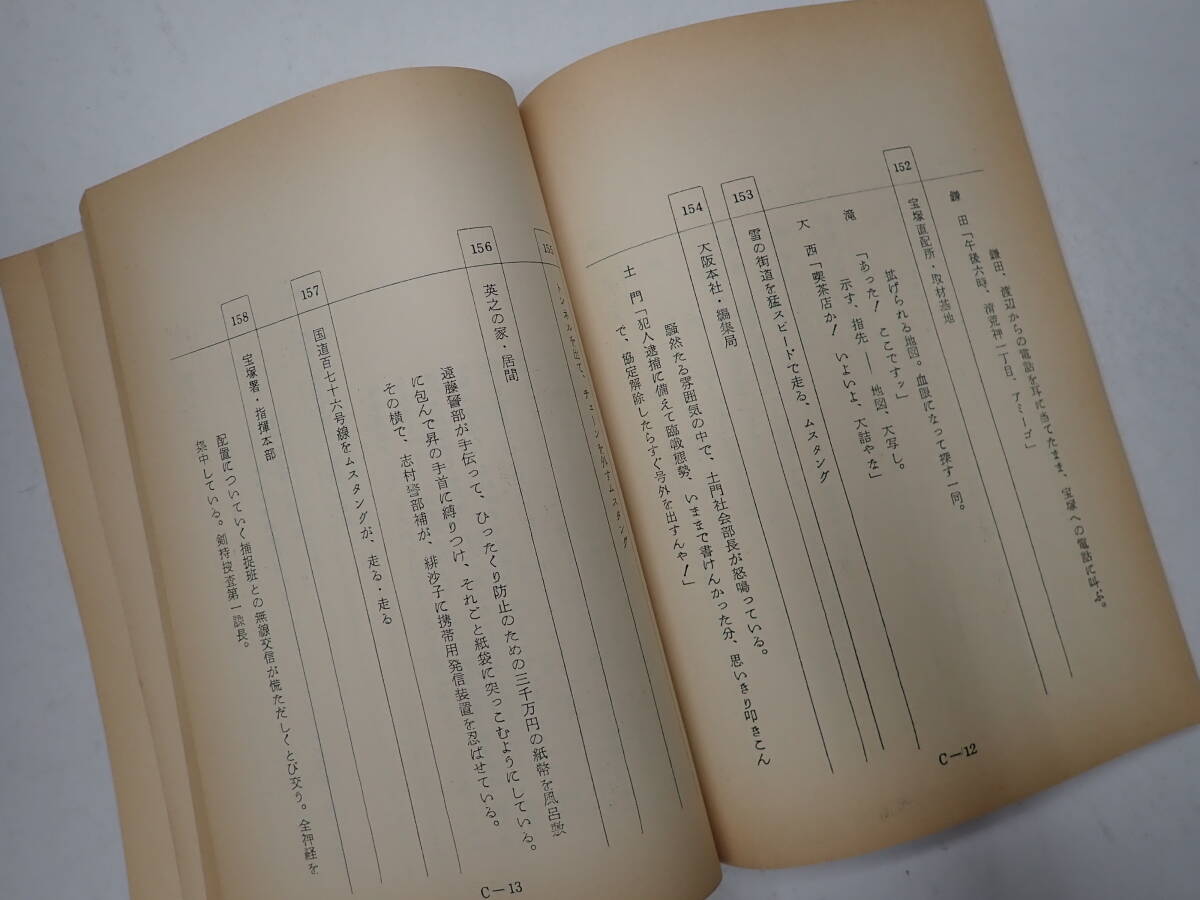 鎌田、渡辺からの電話を耳に当てたまま、宝塚への電話に叫ぶ。
鎌　田「午後六時、清荒神一丁目、アミーゴ」
152
宝塚直配所・取材基地
拡げられる地図。血眼になって探す一同。
滝　「あった！　ここですッ」
示す、指先――地図、大写し。
大　西「喫茶店か！　いよいよ、大詰やな」
153
雪の街道を猛スピードで走る、ムスタング
154
大阪本社・編集局
騒然たる雰囲気の中で、土門社会部長が怒鳴っている。
土　門「犯人逮捕に備えて臨戦態勢、いままで書けんかった分、思いきり叩きこん
で、協定解除したらすぐ号外を出すんや！」
C－12
155
トンネルを出て、チェーンを外すムスタング
156
英之の家・居間
遠藤警部が手伝って、ひったくり防止のための三千万円の紙幣を風呂敷
に包んで昇の手首に縛りつけ、それごと紙袋に突っこむようにしている。
その横で、志村警部補が、緋沙子に携帯用発信装置を忍ばせている。
157
国道百七十六号線をムスタングが、走る・走る
158
宝塚署・指揮本部
配置についていく捕捉班との無線交信が慌ただしくとび交う。全神経を
集中している。剣持捜査第一課長。
C－13